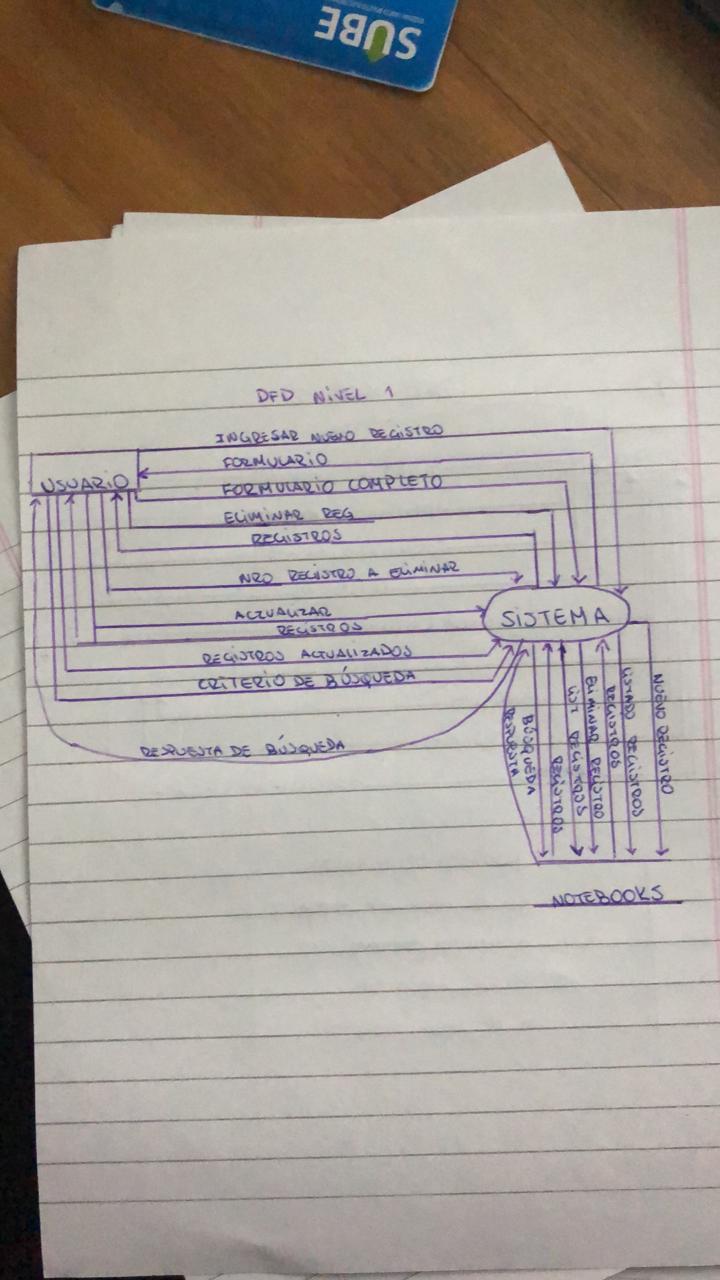 SUBE
DFD NIVEL 1
INGRESAR NUEVO REGISTRO
FORMULARIO
USUARIO
FORMULARIO COMPLETO
ELIMINAR REG
REGISTROS
NRO REGISTRO A ELIMINAR
ACTUALIZAR
SISTEMA
REGISTROS
REGISTROS ACTUALIZADOS
CRITERIO DE BÚSQUEDA
RESPUESTA DE BÚSQUEDA
RESPUESTA
BÚSQUEDA
REGISTROS
LIST REGISTROS
ELIMINAR REGISTRO
REGISTROS
LISTADO REGISTROS
NUEVO REGISTRO
NOTEBOOKS